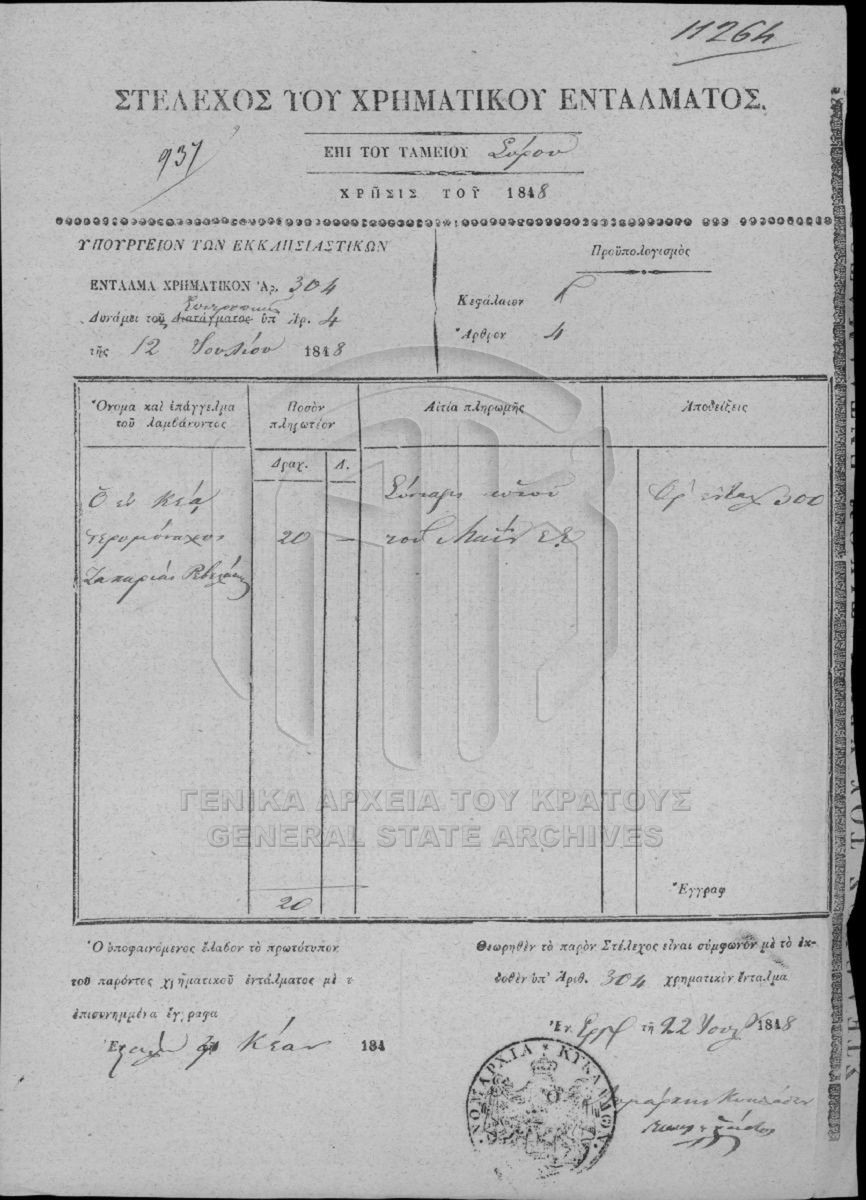 11264
ΣΤΕΛΕΧΟΣ ΤΟΥ ΧΡΗΜΑΤΙΚΟΥ ΕΝΤΑΛΜΑΤΟΣ.
937
ΕΠΙ ΤΟΥ ΤΑΜΕΙΟΥ Σύρου
ΧΡΗΣΙΣ ΤΟΥ 1848
ΥΠΟΥΡΓΕΙΟΝ ΤΩΝ ΕΚΚΛΗΣΙΑΣΤΙΚΩΝ
ΕΝΤΑΛΜΑ ΧΡΗΜΑΤΙΚΟΝ Ἀρ. 304
Δυνάμει τοῦ Διατάγματος ὑπ Ἀρ. 4
τῆς 12 Ἰουλίου 1848
Προϋπολογισμὸς
Κεφάλαιον
Ἄρθρον 4
Ὄνομα καὶ ἐπάγγελμα
τοῦ λαμβάνοντος
Ποσὸν
πληρωτέον
Αἰτία πληρωμῆς
Ἀποδείξεις
Δραχ. Λ.
Ὁ ἐν Κέᾳ
ἱερομόναχος 20 — τοῦ Μαΐου
Ζαχαρίας
300
Ἔγγραφ
20
Ὁ ὑποφαινόμενος ἔλαβον τὸ πρωτότυπον
τοῦ παρόντος χρηματικοῦ ἐντάλματος μὲ τ
ἐπισυνημμένα ἔγγραφα
Κέαν 184
Θεωρηθὲν τὸ παρὸν Στέλεχος εἶναι σύμφωνον μὲ τὸ ἐκ-
δοθὲν ὑπ' Ἀριθ. 304 χρηματικὸν ἔνταλμα
Ἐν Ἑρμ τῇ 22 Ἰουλ 1848
ΝΟΜΑΡΧΙΑ ΚΥΚΛΑΔΩΝ
ΓΕΝΙΚΑ ΑΡΧΕΙΑ ΤΟΥ ΚΡΑΤΟΥΣ
GENERAL STATE ARCHIVES